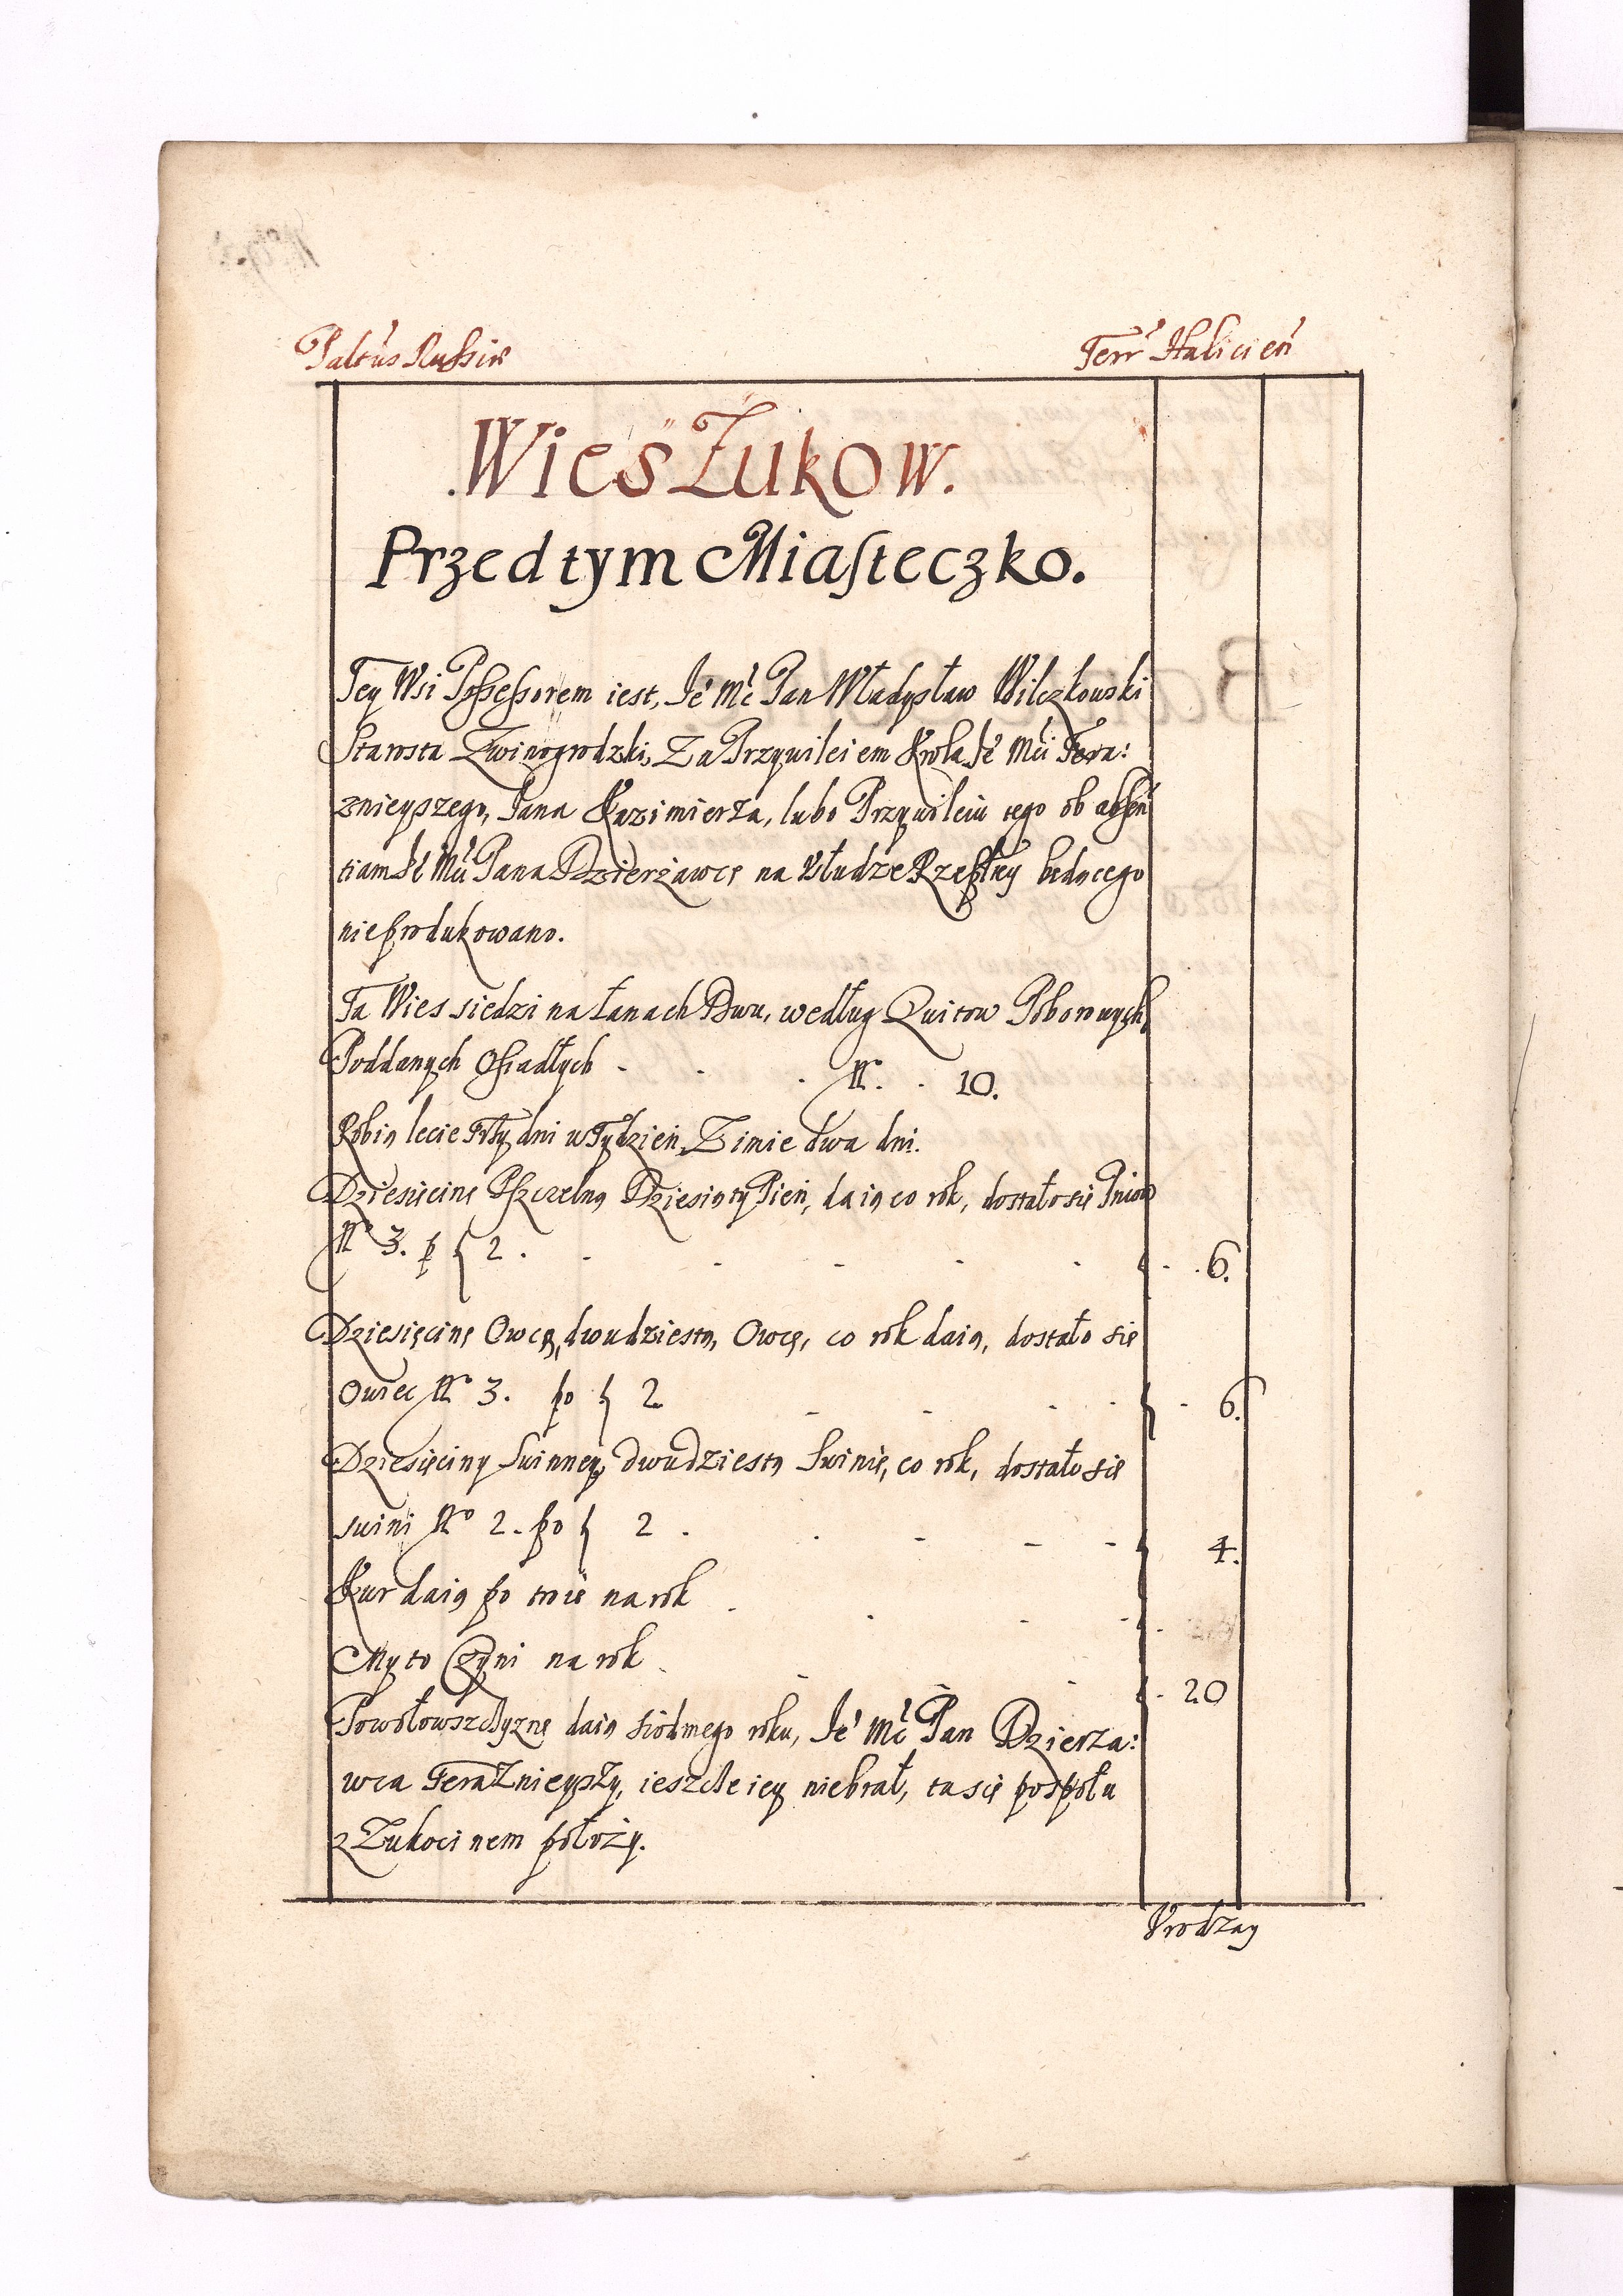 Paltus Russiæ
Terr Halicien
.Wies Zukow.
Przedtym Miasteczko.
Tey Wsi Possessorem iest, Je Mć Pan Władysław Wilczkowski
Starosta Zwinogrodzki, Za Przywileiem Krola Je Mći Tera:
znieyszego, Jana Kazimierza, lubo Przywileiu tego ob absen
tiam Je Mći Pana Dzierżawcę na Usłudze Rzepltey będącego
nieprodukowano.
Ta Wies siedzi na Łanach Dwu, według Quitow Poborowych
Poddanych Osiadłych - - - No. - 10.
Robią lecie Trzy dni w Tydzień, Zimie dwa dni.
Dziesięcinę Pszczelną Dziesiąty Pień, daią co rok, dostało się Pniow
No 3. p { 2. - 6.
Dziesięcinę Owczą, dwudziestą, Owcę, co rok daią, dostało się
Owiec No 3. po { 2 - 6.
Dziesięciny Swinney, dwudziestą Swinię, co rok, dostało się
swini No 2. po { 2. - 4.
Kur daią po troie na rok
Myto Czyni na rok - 20
Powołowszczyznę daią siodmego roku, Je Mć Pan Dzierza:
wca Teraznieyszy, ieszcze iey niebrał, ta się pospołu
z Zukocinem położy.
Urodzay